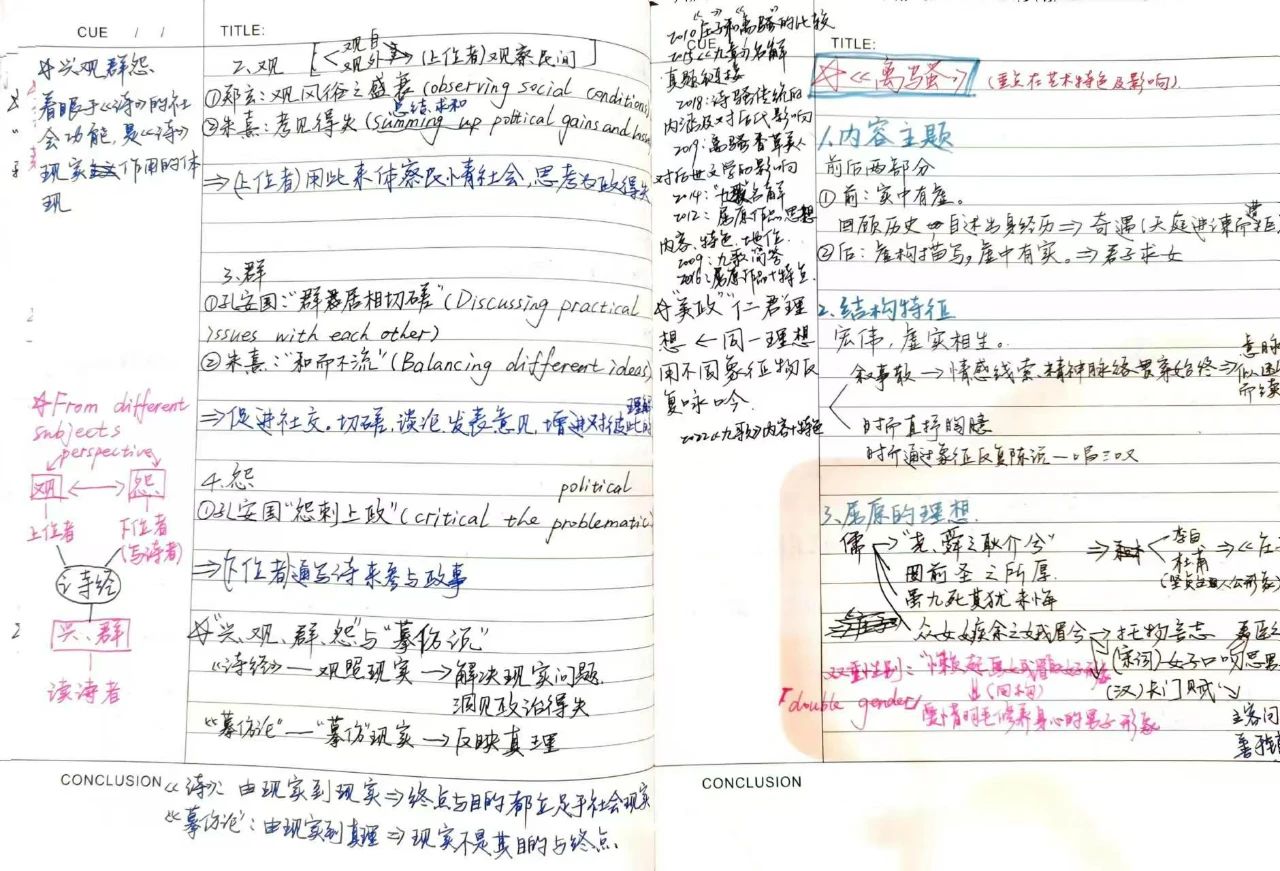 CUE / /
TITLE:
☆兴观群怨
着眼于《诗》的社
会功能,是《诗》
现实作用的体
现
☆From different
subjects
perspective
观 ←→ 怨
上位者 下位者
(写诗者)
诗经
兴、群
读诗者
2.观 [观自 观外 (上位者)观察民间]
①郑玄:观风俗之盛衰(observing social conditions)
总结求和
②朱熹:考见得失(summing up political gains and
⇒(上位者)用此来体察民情社会,思考为政得失
3.群
①孔安国:“群居相切磋”(Discussing practical
issues with each other)
②朱熹:“和而不流”(Balancing different ideas)
⇒促进社交。切磋,谈论,发表意见,增进对彼此的
理解
4.怨
political
①孔安国“怨刺上政”(critical the problematic
⇒(下位者)通写诗来参与政事
☆“兴、观、群、怨”与“摹仿说”
《诗经》—观照现实→解决现实问题
洞见政治得失
“摹仿论”—“摹仿”现实→反映真理
CONCLUSION
《诗》:由现实到现实⇒终点与目的都立足于社会现实
“摹仿论”:由现实到真理⇒现实不是其目的与终点.
CUE
2010庄子和“离骚”的比较
2015《九章》名解
2018:诗骚传统的
内涵及对后代影响
2019:离骚香草美人
对后世文学的影响
2014:“九歌”名解
2012:屈原作品思想
内容、特色、地位.
2009:九歌简答
2016:屈原作品+特点.
☆“美政”“仁君”理
想←同一理想
用不同象征物反
复咏吟.
2022《九歌》内容+特色
TITLE:
☆《离骚》(重点在艺术特色及影响)
1.内容主题
前后两部分
①前:实中有虚。
回顾历史 自述出身经历⇒奇遇(天庭进谏而
②后:虚构描写,虚中有实。⇒君子求女
2.结构特征
宏伟,虚实相生。
叙事散→情感线索、精神脉络贯穿始终⇒
意脉
似
而续
时而直抒胸臆
时而通过象征反复陈说一唱三叹
3.屈原的理想.
儒 “尧、舜之耿介兮”
固前圣之所厚.
虽九死其犹未悔
⇒ 李白
杜甫
众女嫉余之蛾眉兮→托物言志
(宋词)女子口吻
(汉)长门赋
双重性别:
「double gender」
(同构)
主客问
CONCLUSION